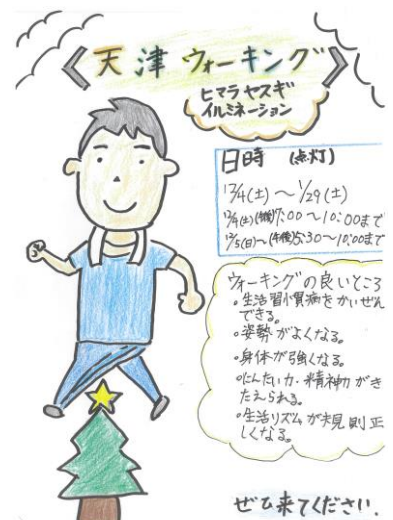 天津ウォーキング
ヒマラヤスギ
イルミネーション
日時 (点灯)
12/4(土)～1/29(土)
12/4(土)(午後)7:00～10:00まで
12/5(日)～(午後)5:30～10:00まで
ウォーキングの良いところ
・生活習慣病をかいぜん
できる。
・姿勢がよくなる。
・身体が強くなる。
・にんたい力・精神力がき
たえられる。
・生活リズムが規則正
しくなる。
ぜひ来てください.